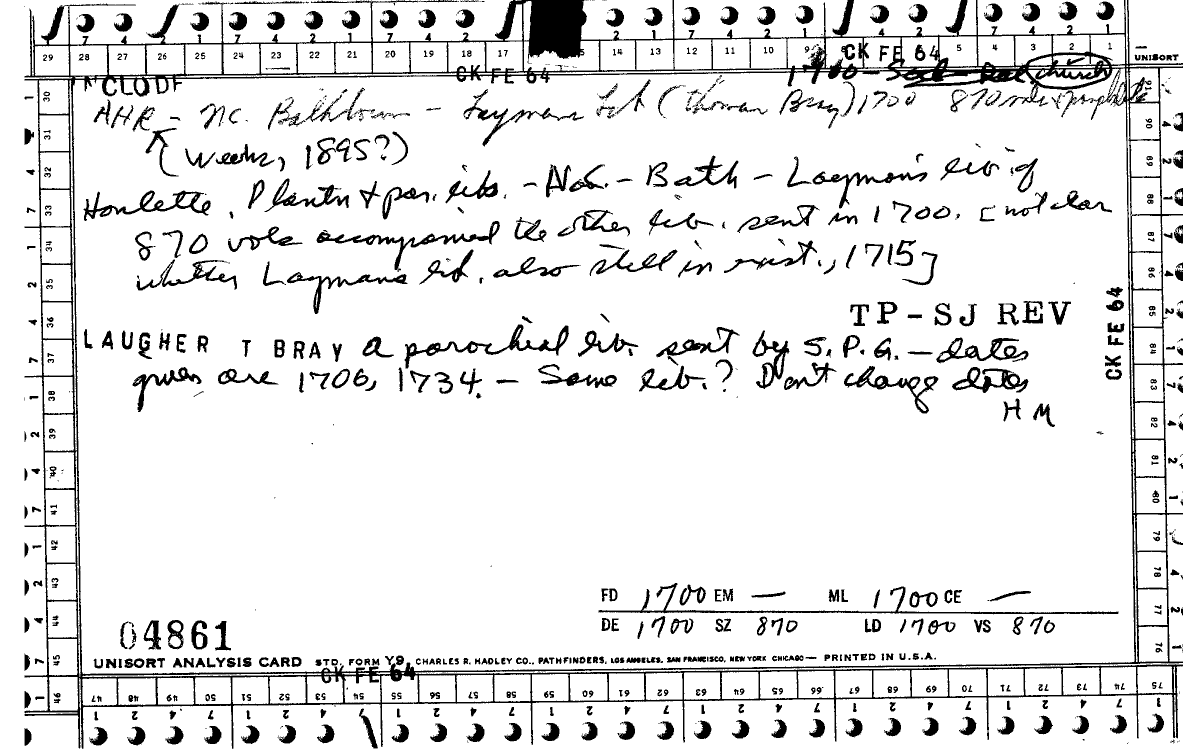 29 28 27 26 25 24 23 22 21 20 19 18 17 14 13 12 11 10 9 5 4 3 2 1
UNISORT
CK FE 64
CK FE 64
1700 - church
INCLUDE
AHR - NC. Bath town - Laymans Lib (Thomas Bray) 1700 870 vols & pamphlets
(Weeks, 1895?)
Houlette, Plantn & par. libs. - No. - Bath - Layman's lib. of
870 vols accompanied the other lib. sent in 1700. [not clear
whether Laymans lib. also still in exist., 1715]
TP-SJ REV
CK FE 64
LAUGHER T BRAY a parochial lib. sent by S. P. G. - dates
given are 1706, 1734. - Same lib.? Don't change dates
HM
FD 1700 EM — ML 1700 CE —
DE 1700 SZ 870 LD 1700 VS 870
04861
UNISORT ANALYSIS CARD STD. FORM Y9, CHARLES R. HADLEY CO., PATHFINDERS, LOS ANGELES, SAN FRANCISCO, NEW YORK CHICAGO — PRINTED IN U.S.A.
CK FE 64
47 48 49 50 51 52 53 54 55 56 57 58 59 60 61 62 63 64 65 66 67 68 69 70 71 72 73 74 75